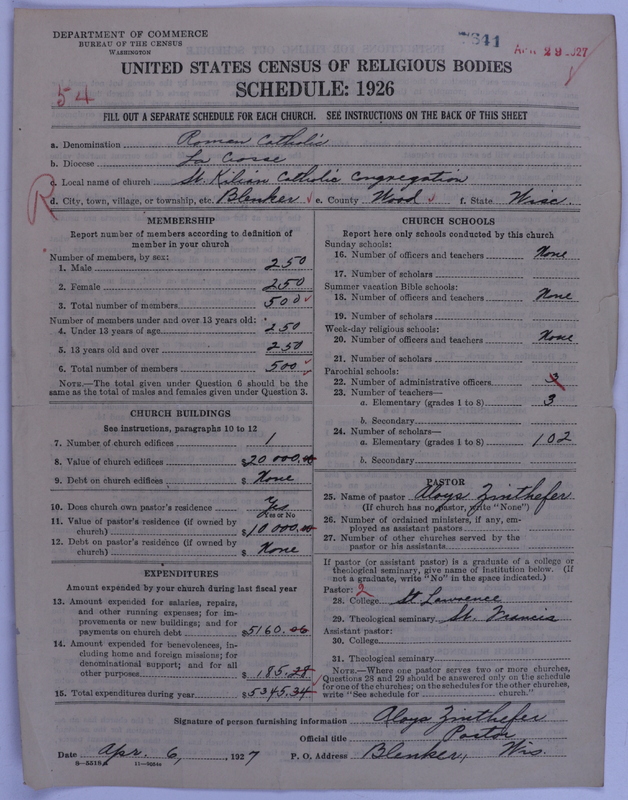 DEPARTMENT OF COMMERCE
BUREAU OF THE CENSUS
WASHINGTON
7641
APR 29 1927
UNITED STATES CENSUS OF RELIGIOUS BODIES
SCHEDULE: 1926
54
FILL OUT A SEPARATE SCHEDULE FOR EACH CHURCH. SEE INSTRUCTIONS ON THE BACK OF THIS SHEET
a. Denomination Roman Catholic
b. Diocese La Crosse
c. Local name of church St. Kilian Catholic Congregation
R
d. City, town, village, or township, etc. Blenker e. County Wood f. State Wisc.
MEMBERSHIP
Report number of members according to definition of
member in your church
Number of members, by sex:
1. Male 250
2. Female 250
3. Total number of members 500
Number of members under and over 13 years old:
4. Under 13 years of age 250
5. 13 years old and over 250
6. Total number of members 500
NOTE.—The total given under Question 6 should be the
same as the total of males and females given under Question 3.
CHURCH BUILDINGS
See instructions, paragraphs 10 to 12
7. Number of church edifices 1
8. Value of church edifices $20000.00
9. Debt on church edifices $ None
10. Does church own pastor's residence Yes
Yes or No
11. Value of pastor's residence (if owned by
church) $10000.00
12. Debt on pastor's residence (if owned by
church) $ None
EXPENDITURES
Amount expended by your church during last fiscal year
13. Amount expended for salaries, repairs,
and other running expenses; for im-
provements or new buildings; and for
payments on church debt $5160.06
14. Amount expended for benevolences, in-
cluding home and foreign missions; for
denominational support; and for all
other purposes $185.28
15. Total expenditures during year $5345.34
CHURCH SCHOOLS
Report here only schools conducted by this church
Sunday schools:
16. Number of officers and teachers None
17. Number of scholars
Summer vacation Bible schools:
18. Number of officers and teachers None
19. Number of scholars
Week-day religious schools:
20. Number of officers and teachers None
21. Number of scholars
Parochial schools:
22. Number of administrative officers 3
23. Number of teachers—
a. Elementary (grades 1 to 8) 3
b. Secondary
24. Number of scholars—
a. Elementary (grades 1 to 8) 102
b. Secondary
PASTOR
25. Name of pastor Aloys Zinthefer
(If church has no pastor, write "None")
26. Number of ordained ministers, if any, em-
ployed as assistant pastors
27. Number of other churches served by the
pastor or his assistants
If pastor (or assistant pastor) is a graduate of a college or
theological seminary, give name of Institution below. (If
not a graduate, write "No" in the space indicated.)
Pastor: 2
28. College St Lawrence
29. Theological seminary St. Francis
Assistant pastor:
30. College
31. Theological seminary
NOTE.—Where one pastor serves two or more churches,
Questions 28 and 29 should be answered only on the schedule
for one of the churches; on the schedules for the other churches,
write "See schedule for church."
Signature of person furnishing information Aloys Zinthefer
Official title Pastor
Date Apr. 6, , 1927 P. O. Address Blenker, Wis.